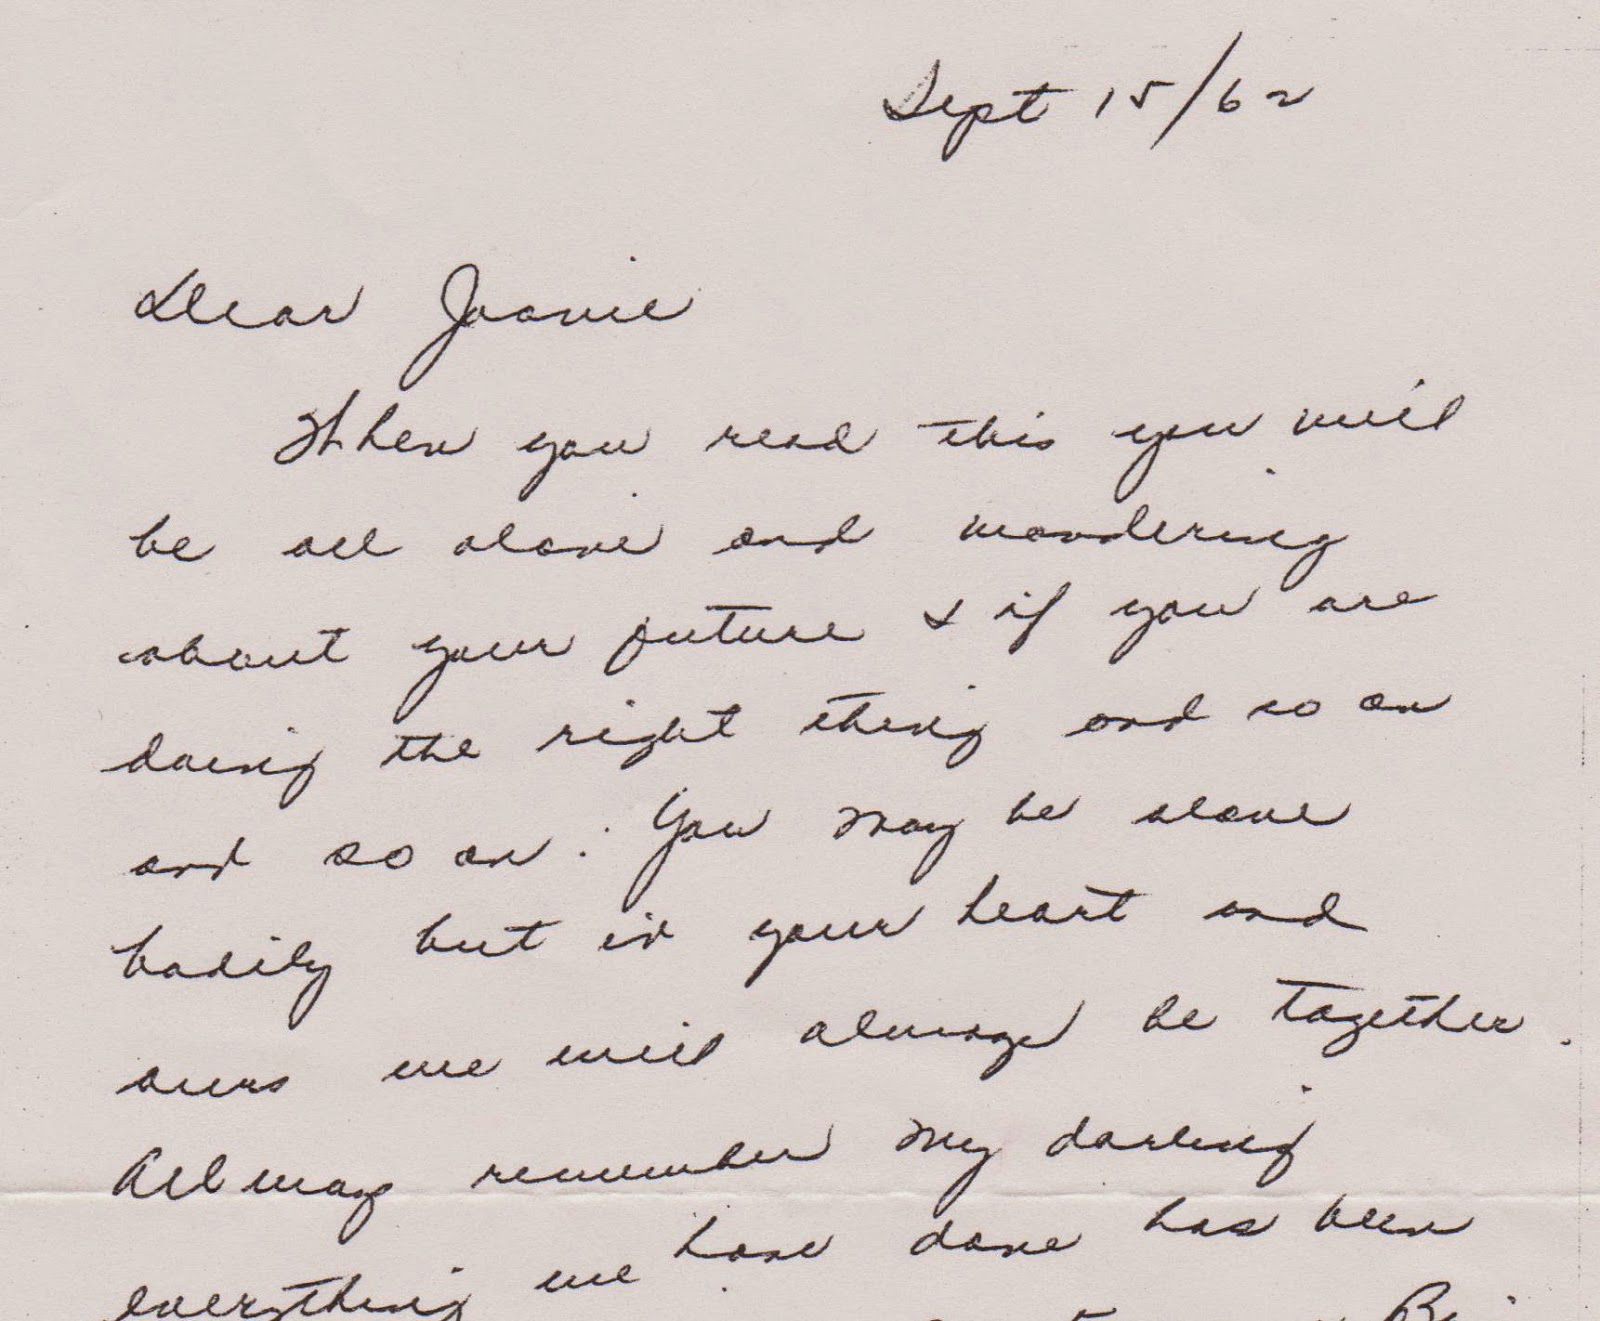 Sept 15/62
Dear Joanie
When you read this you will
be all alone and wondering
about your future & if you are
doing the right thing and so on
and so on. You may be alone
bodily but in your heart and
ours we will always be together.
Allways remember my darling
everything we have done has been